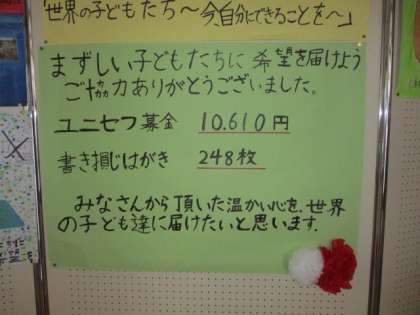 「世界の子どもたち〜今、自分にできることを〜」
まずしい子どもたちに希望を届けよう
ご協力ありがとうございました。
ユニセフ募金 10,610円
書き損じはがき 248枚
みなさんから頂いた温かい心を、世界
の子ども達に届けたいと思います。